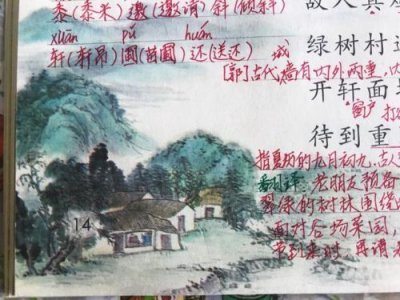 黍(黍米)邀(邀请)斜(倾斜)
故人具
xuān pú huán
轩(轩昂)圃(苗圃)还(送还) 城
绿树村
[郭]古代墙有内外两重,内
开轩面
窗户 打
待到重
指夏历的九月初九,古人
老朋友预备
翠绿的树林围绕
14
面对谷场菜园,
等到来时,再请